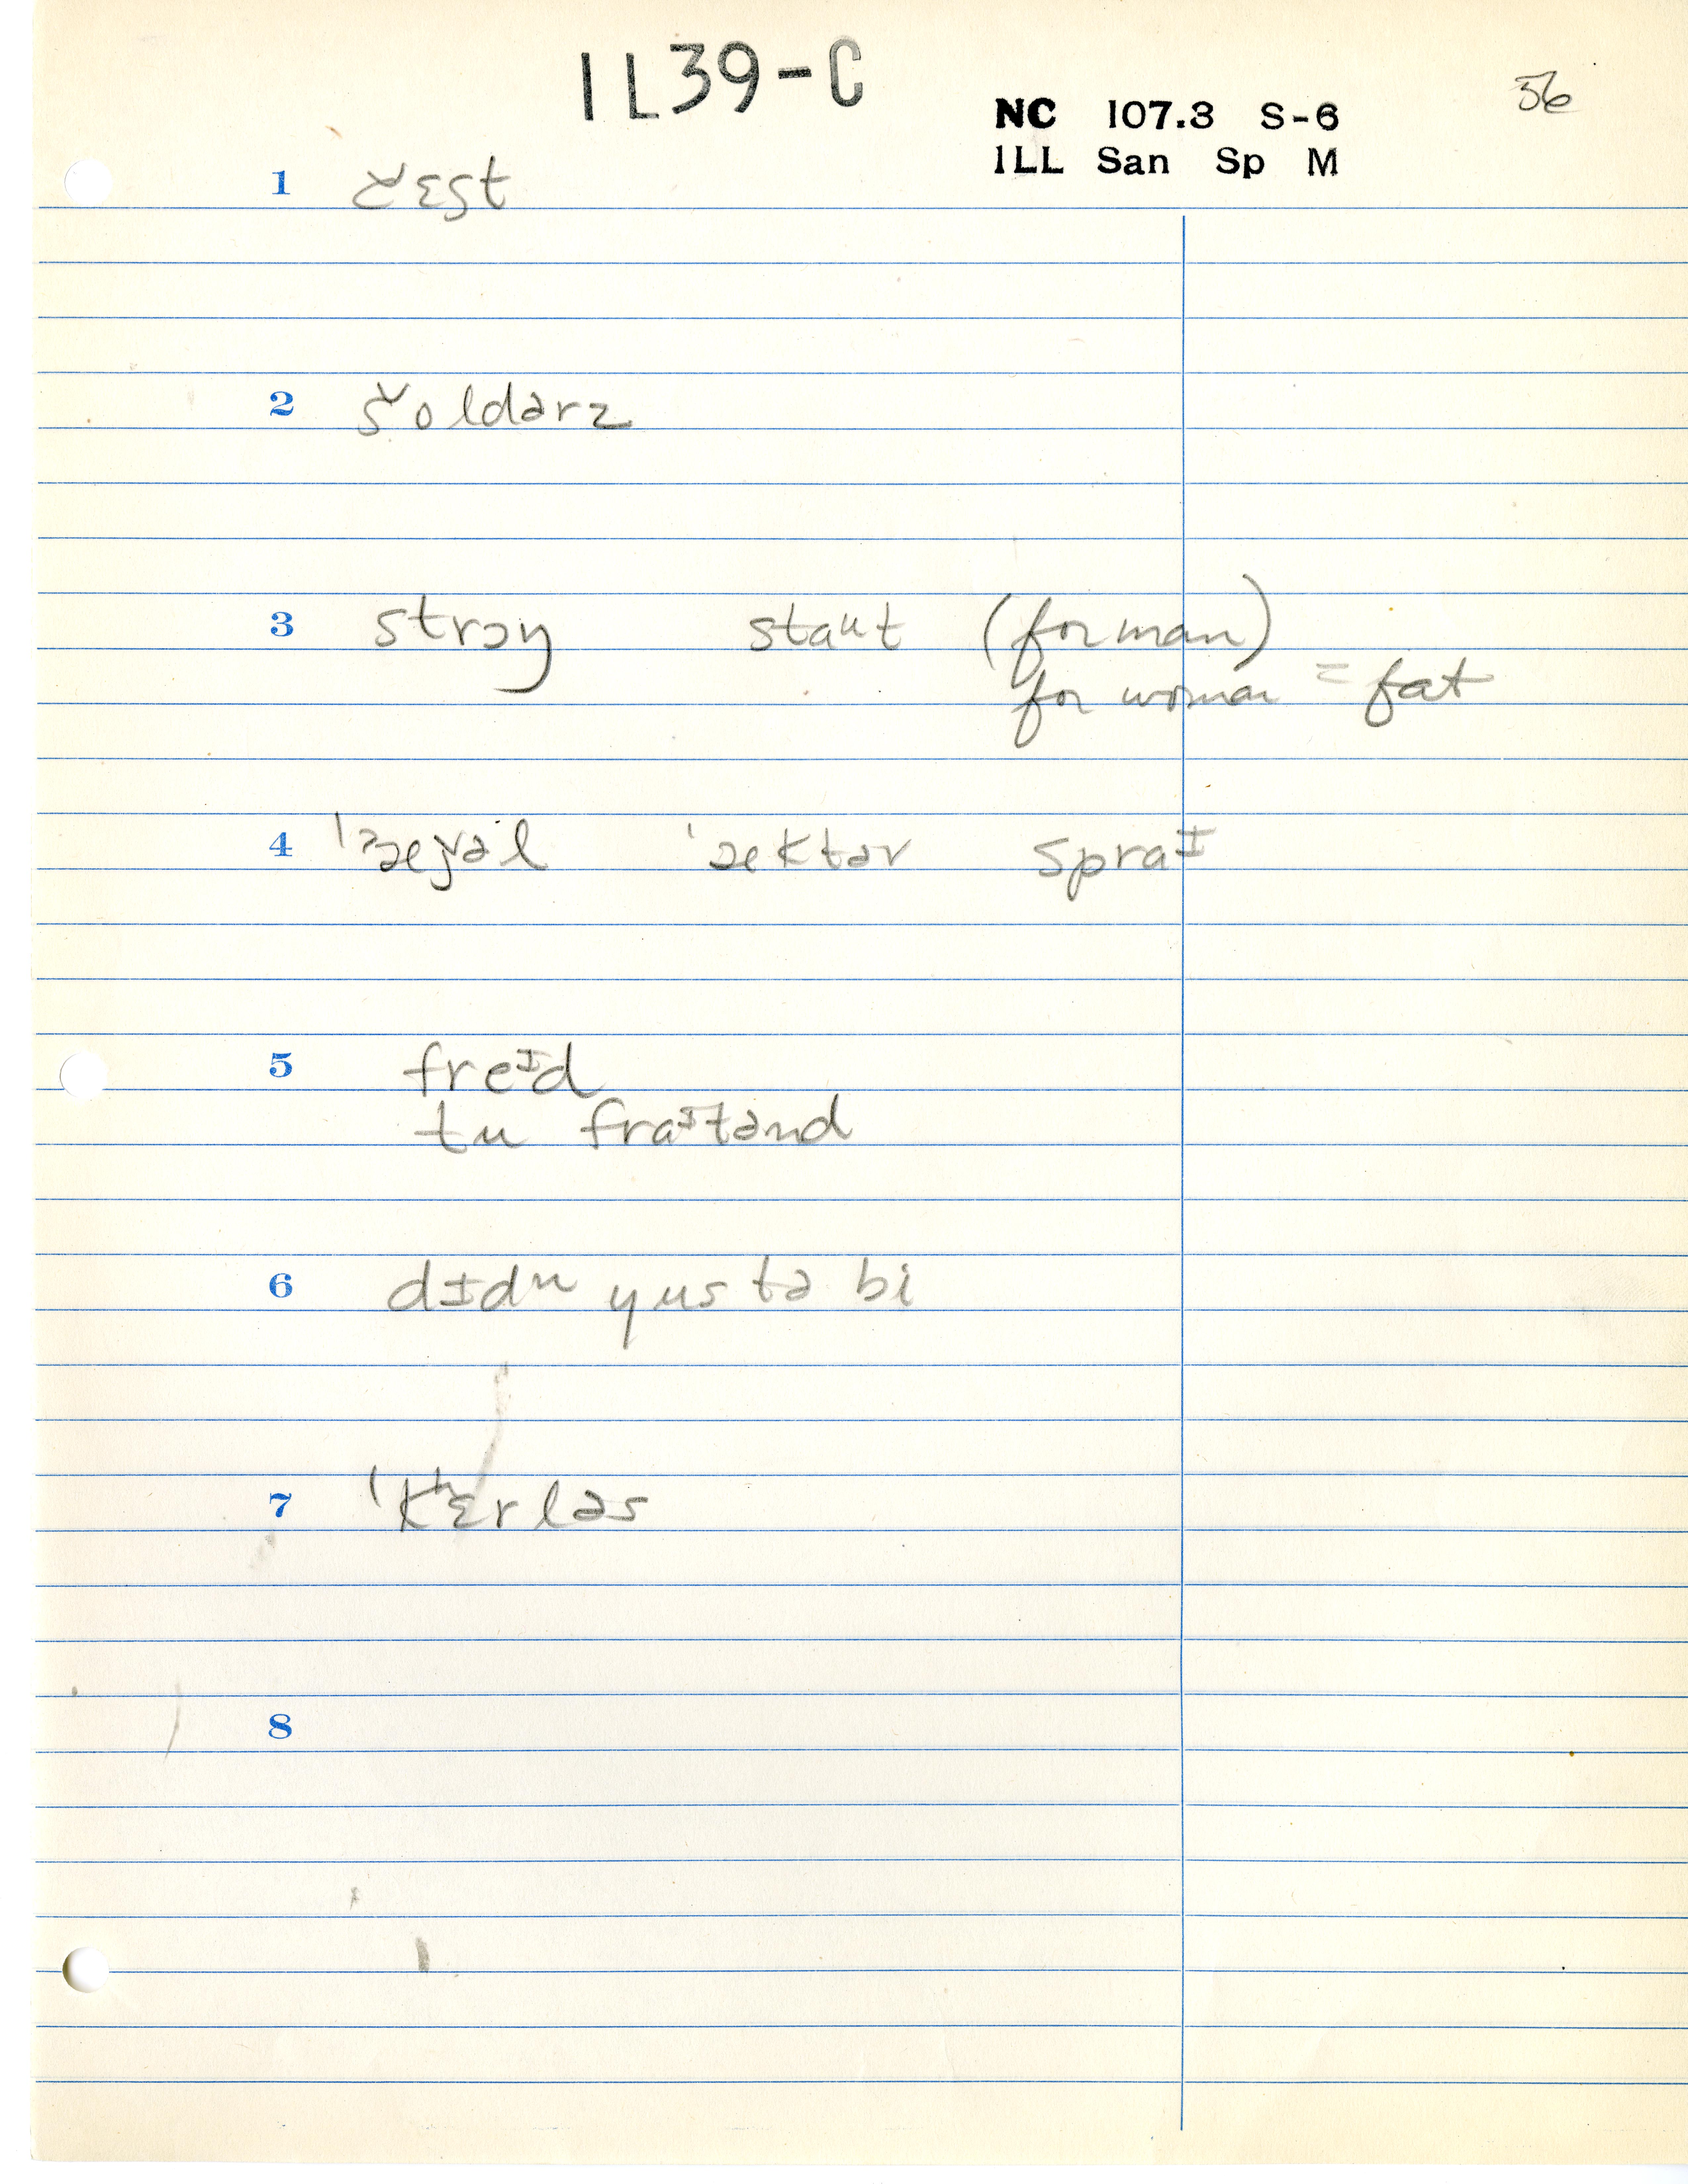 IL39-C
56
NC 107.3 S-6
ILL San Sp M
1 čɛst
2 šoldərz
3 strɔŋ staᵘt (for man)
for woman = fat
4 ˈæǰəl ˈæktəv spraᶦ
5 freᶦd
tu fraᶦtənd
6 dɪdn yus tə bi
7 ˈkʰɛrləs
8